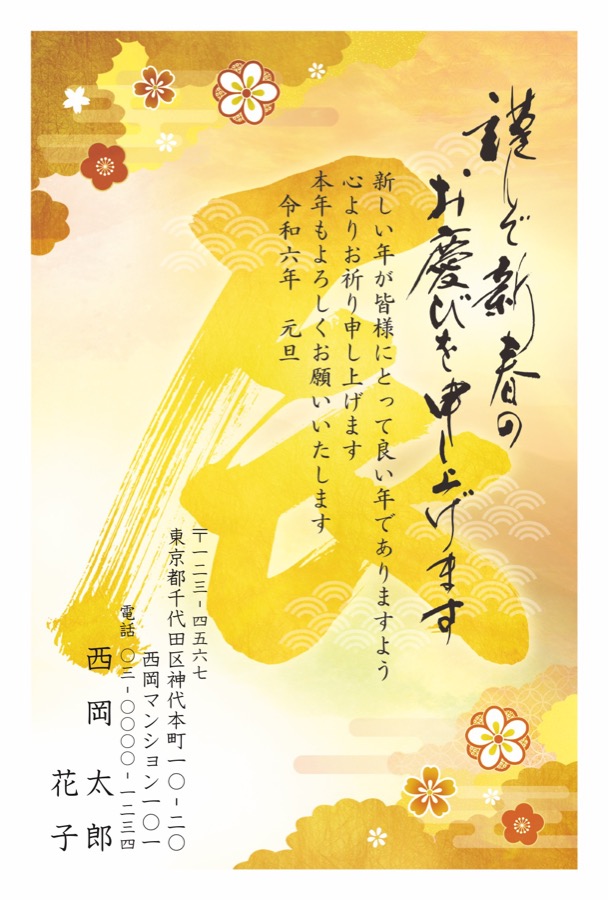 謹んで新春の
お慶びを申し上げます
新しい年が皆様にとって良い年でありますよう
心よりお祈り申し上げます
本年もよろしくお願いいたします
令和六年 元旦
〒一二三-四五六七
東京都千代田区神代本町一〇-二〇
西岡マンション一〇一
電話 〇三-〇〇〇〇-一二三四
西岡 太郎
花子
辰